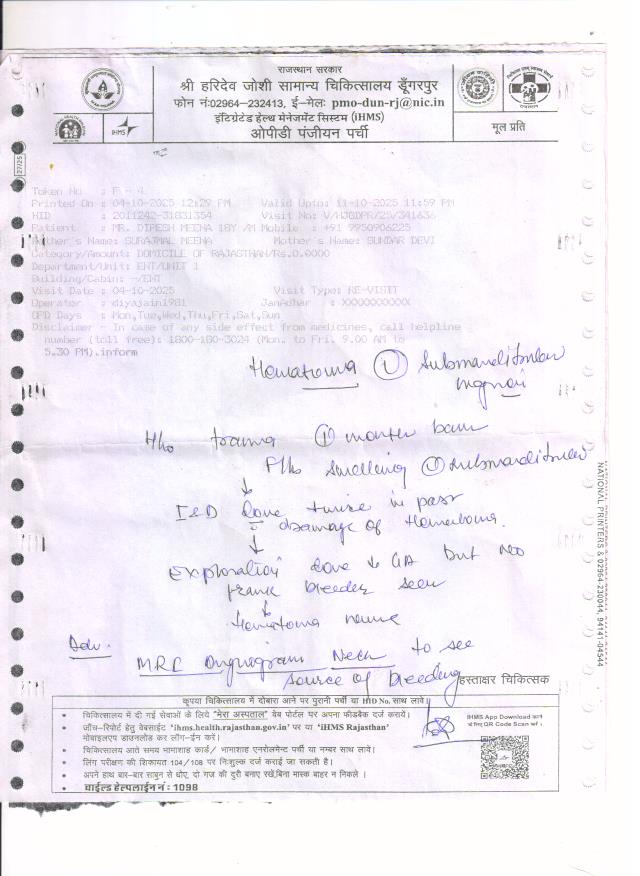 राजस्थान सरकार
श्री हरिदेव जोशी सामान्य चिकित्सालय डूँगरपुर
फोन नं:02964-232413, ई-मेल: pmo-dun-rj@nic.in
इंटिग्रेटेड हेल्थ मेनेजमेंट सिस्टम (iHMS)
ओपीडी पंजीयन पर्ची
IHMS
मूल प्रति
27/25
Token No : F - 4
Printed On : 04-10-2025 12:29 PM Valid Upto: 11-10-2025 11:59 PM
HID : 2011242-31831354 Visit No: V/HJGDPR/25/341636
Patient : MR. DIPESH MEENA 18Y /M Mobile : +91 9950906225
Father's Name: SURAJMAL MEENA Mother's Name: SUNDAR DEVI
Category/Amount: DOMICILE OF RAJASTHAN/Rs.0.0000
Department/Unit: ENT/UNIT 1
Building/Cabin: -/ENT
Visit Date : 04-10-2025 Visit Type: RE-VISIT
Operator : diyajain1981 JanAdhar : XXXXXXXXXXX
OPD Days : Mon,Tue,Wed,Thu,Fri,Sat,Sun
Disclaimer - In case of any side effect from medicines, call helpline
number (toll free): 1800-180-3024 (Mon. to Fri. 9.00 AM to
5.30 PM).inform
Hematoma Submandibular
H/o trauma
swelling submandibular
I&D done twice in past
drainage of Hematoma.
Exploration done GA but no
frank bleeder seen
Hematoma
Adv.
Angiogram Neck to see
source of bleeding
हस्ताक्षर चिकित्सक
कृपया चिकित्सालय में दोबारा आने पर पुरानी पर्ची या HID No. साथ लावे।
• चिकित्सालय में दी गई सेवाओं के लिये "मेरा अस्पताल" वेब पोर्टल पर अपना फीडबैक दर्ज करायें।
• जाँच-रिपोर्ट हेतु वेबसाईट 'ihms.health.rajasthan.gov.in' पर या 'iHMS Rajasthan'
मोबाइलएप डाउनलोड कर लॉग-ईन करें।
• चिकित्सालय आते समय भामाशाह कार्ड/ भामाशाह एनरोलमेन्ट पर्ची या नम्बर साथ लावे।
• लिंग परीक्षण की शिकायत 104/108 पर निःशुल्क दर्ज कराई जा सकती है।
• अपने हाथ बार-बार साबुन से धोए, दो गज की दूरी बनाए रखें,बिना मास्क बाहर न निकले ।
• चाईल्ड हेल्पलाईन नं : 1098
IHMS App Download करने
के लिए QR Code Scan करें .
NATIONAL PRINTERS & 02964-230044, 94141-04544